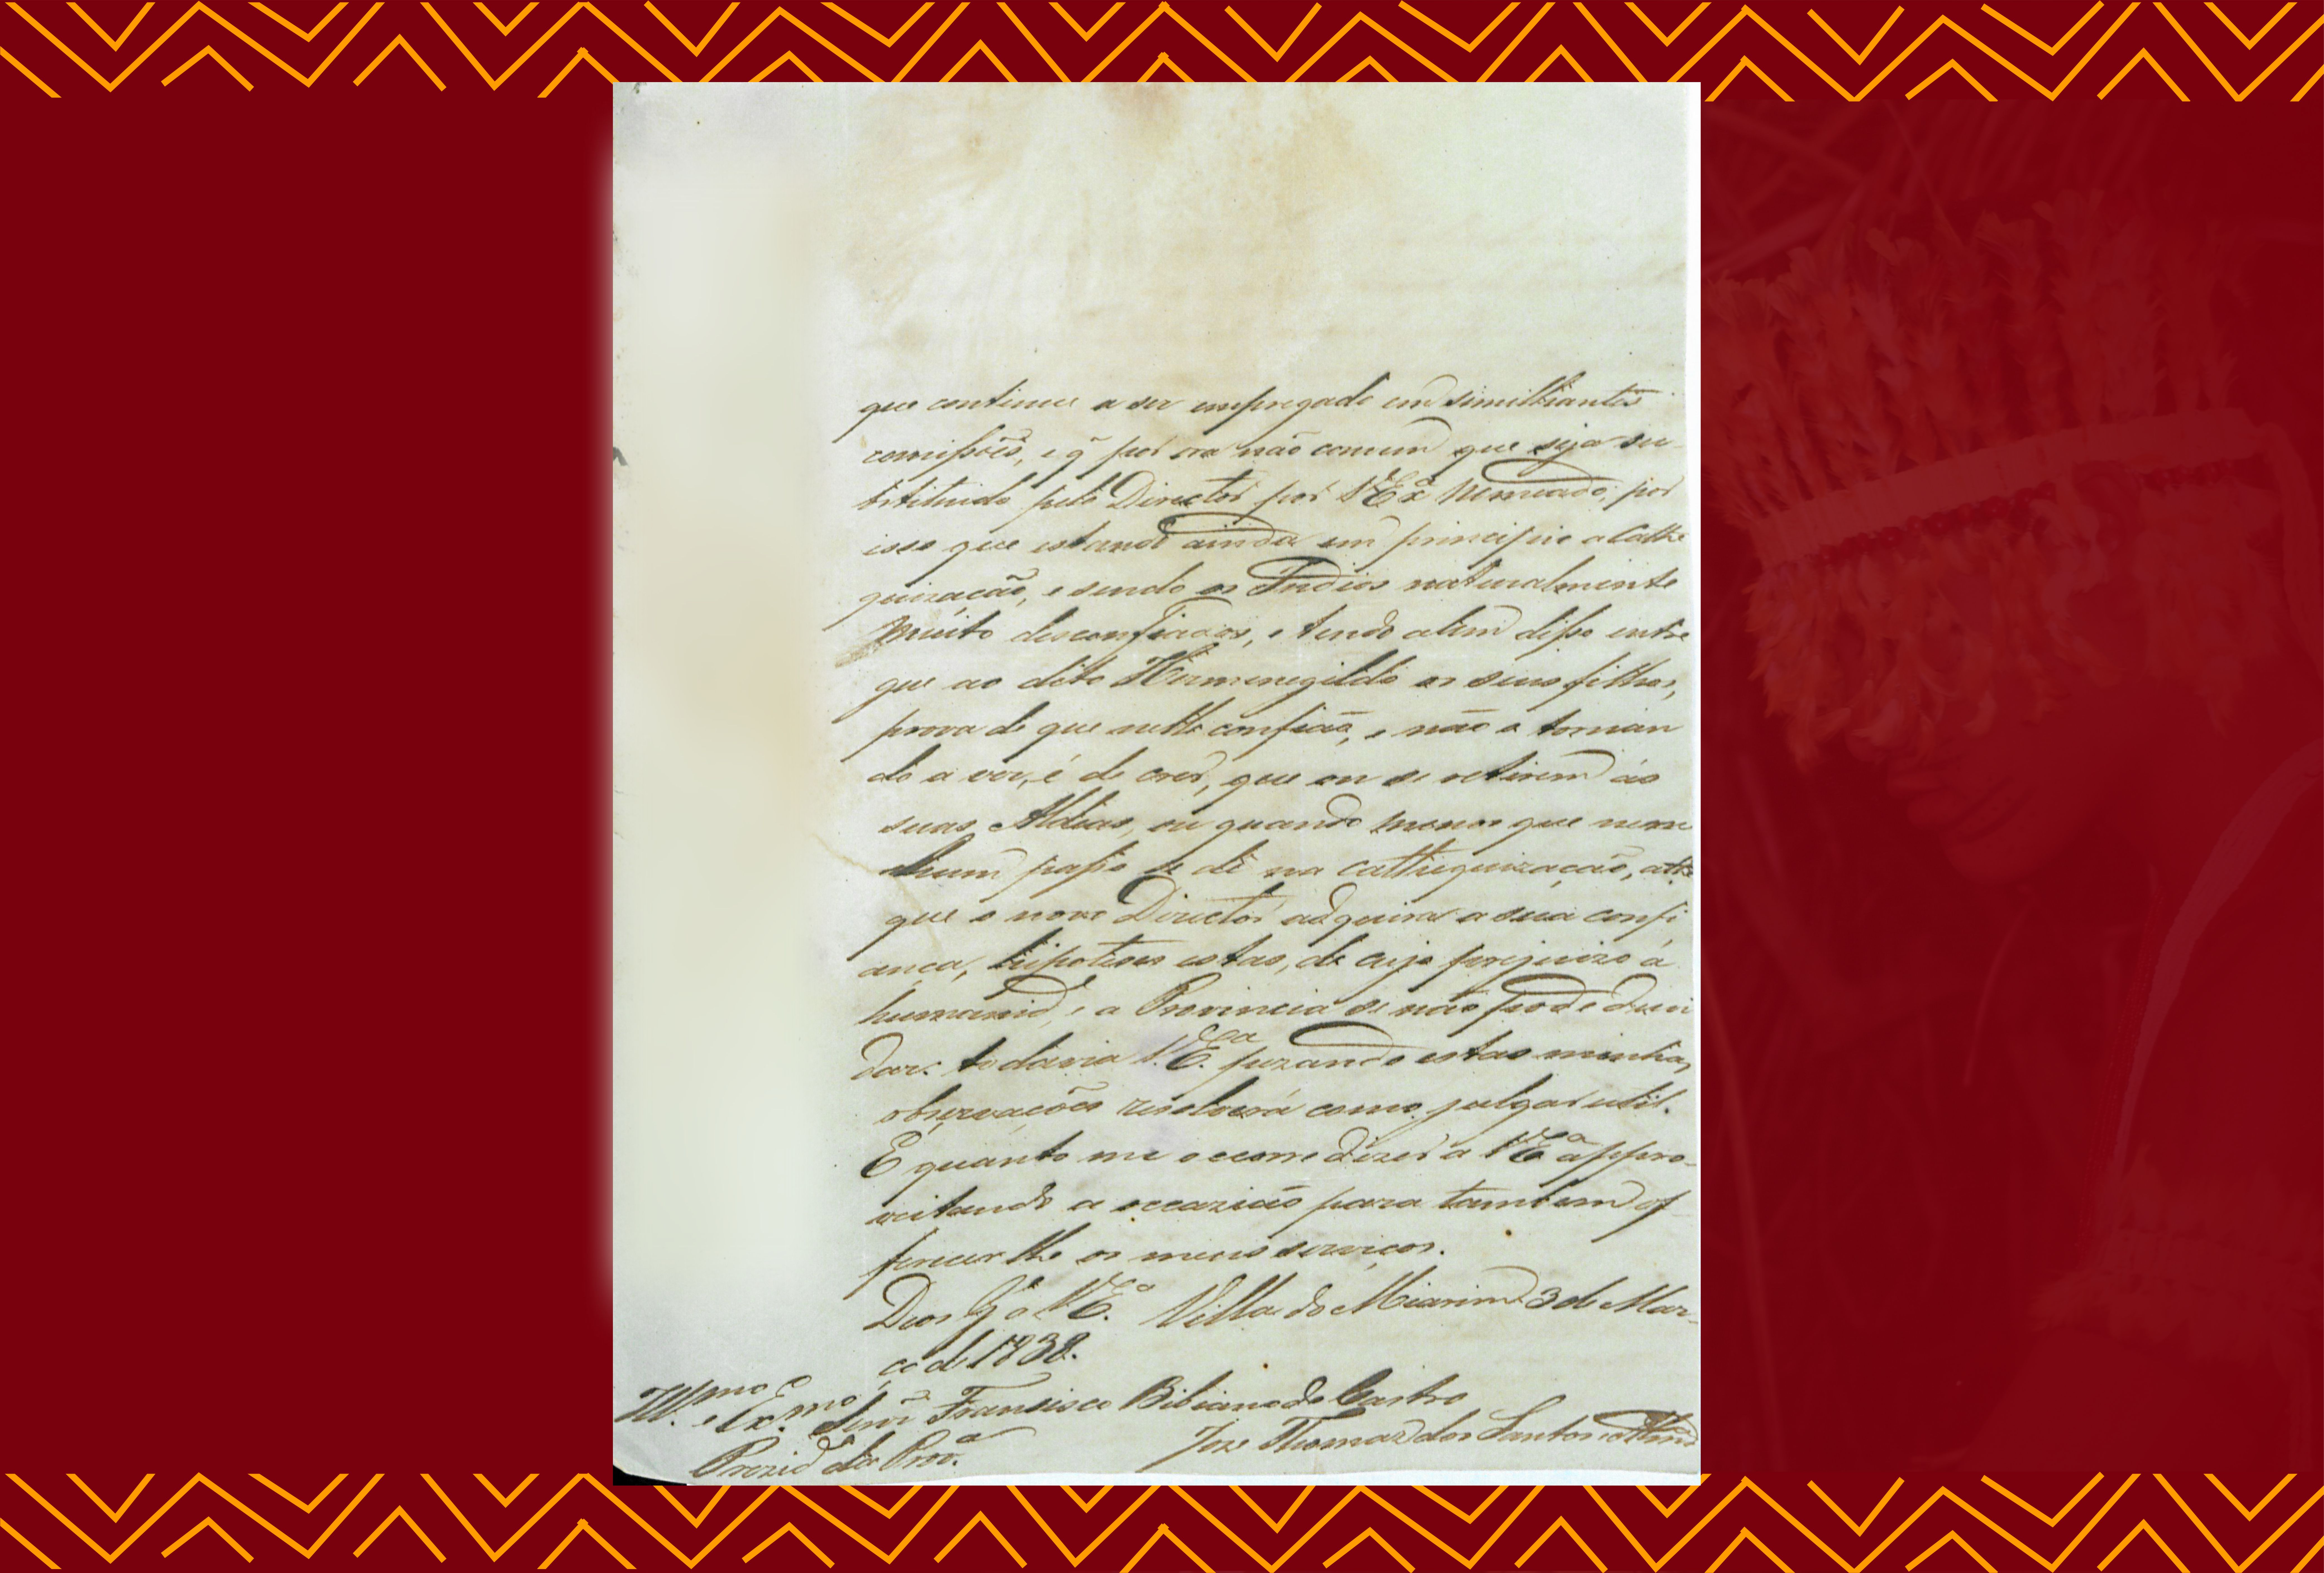 que continue a ser empregado em similhantes
comissoẽs, e q̃ por ora não comum que seja su-
bstituido pelo Director por V Exª Nomeado; por
isso que estando ainda em principio a Cathe
quização, e sendo os Indios naturalmente
muito desconfiados, e tendo alem disso entre
gue ao dito Hermenegildo os seus filhos,
prova de que nelle confiaõ, e não o tornan
do a ver, é de crer, que ou se retirem ás
suas Aldeas, ou quando menos que nem
hum passo se dê na cathequização, athe
que o novo Director adquira a sua confi
ança, hipoteses estas, de cujo prejuizo á
humanid.e, e a Provincia se não pode duvi
dar: todavia V. Eª. pezando estas minhas
observações resolverá como julgar util.
É quanto me occorre dizer a V Eª appro-
veitando a occazião para tambem of-
ferecer lhe os meus serviços.
Deos G.e a V Eª. Villa do Mearim 3 de Mar-
ço de 1838.
Ill.mo e Ex.mo Senr Francisco Bibiano de Castro
Prezid.e da Prov.ª
Joze Thomaz dos Santos